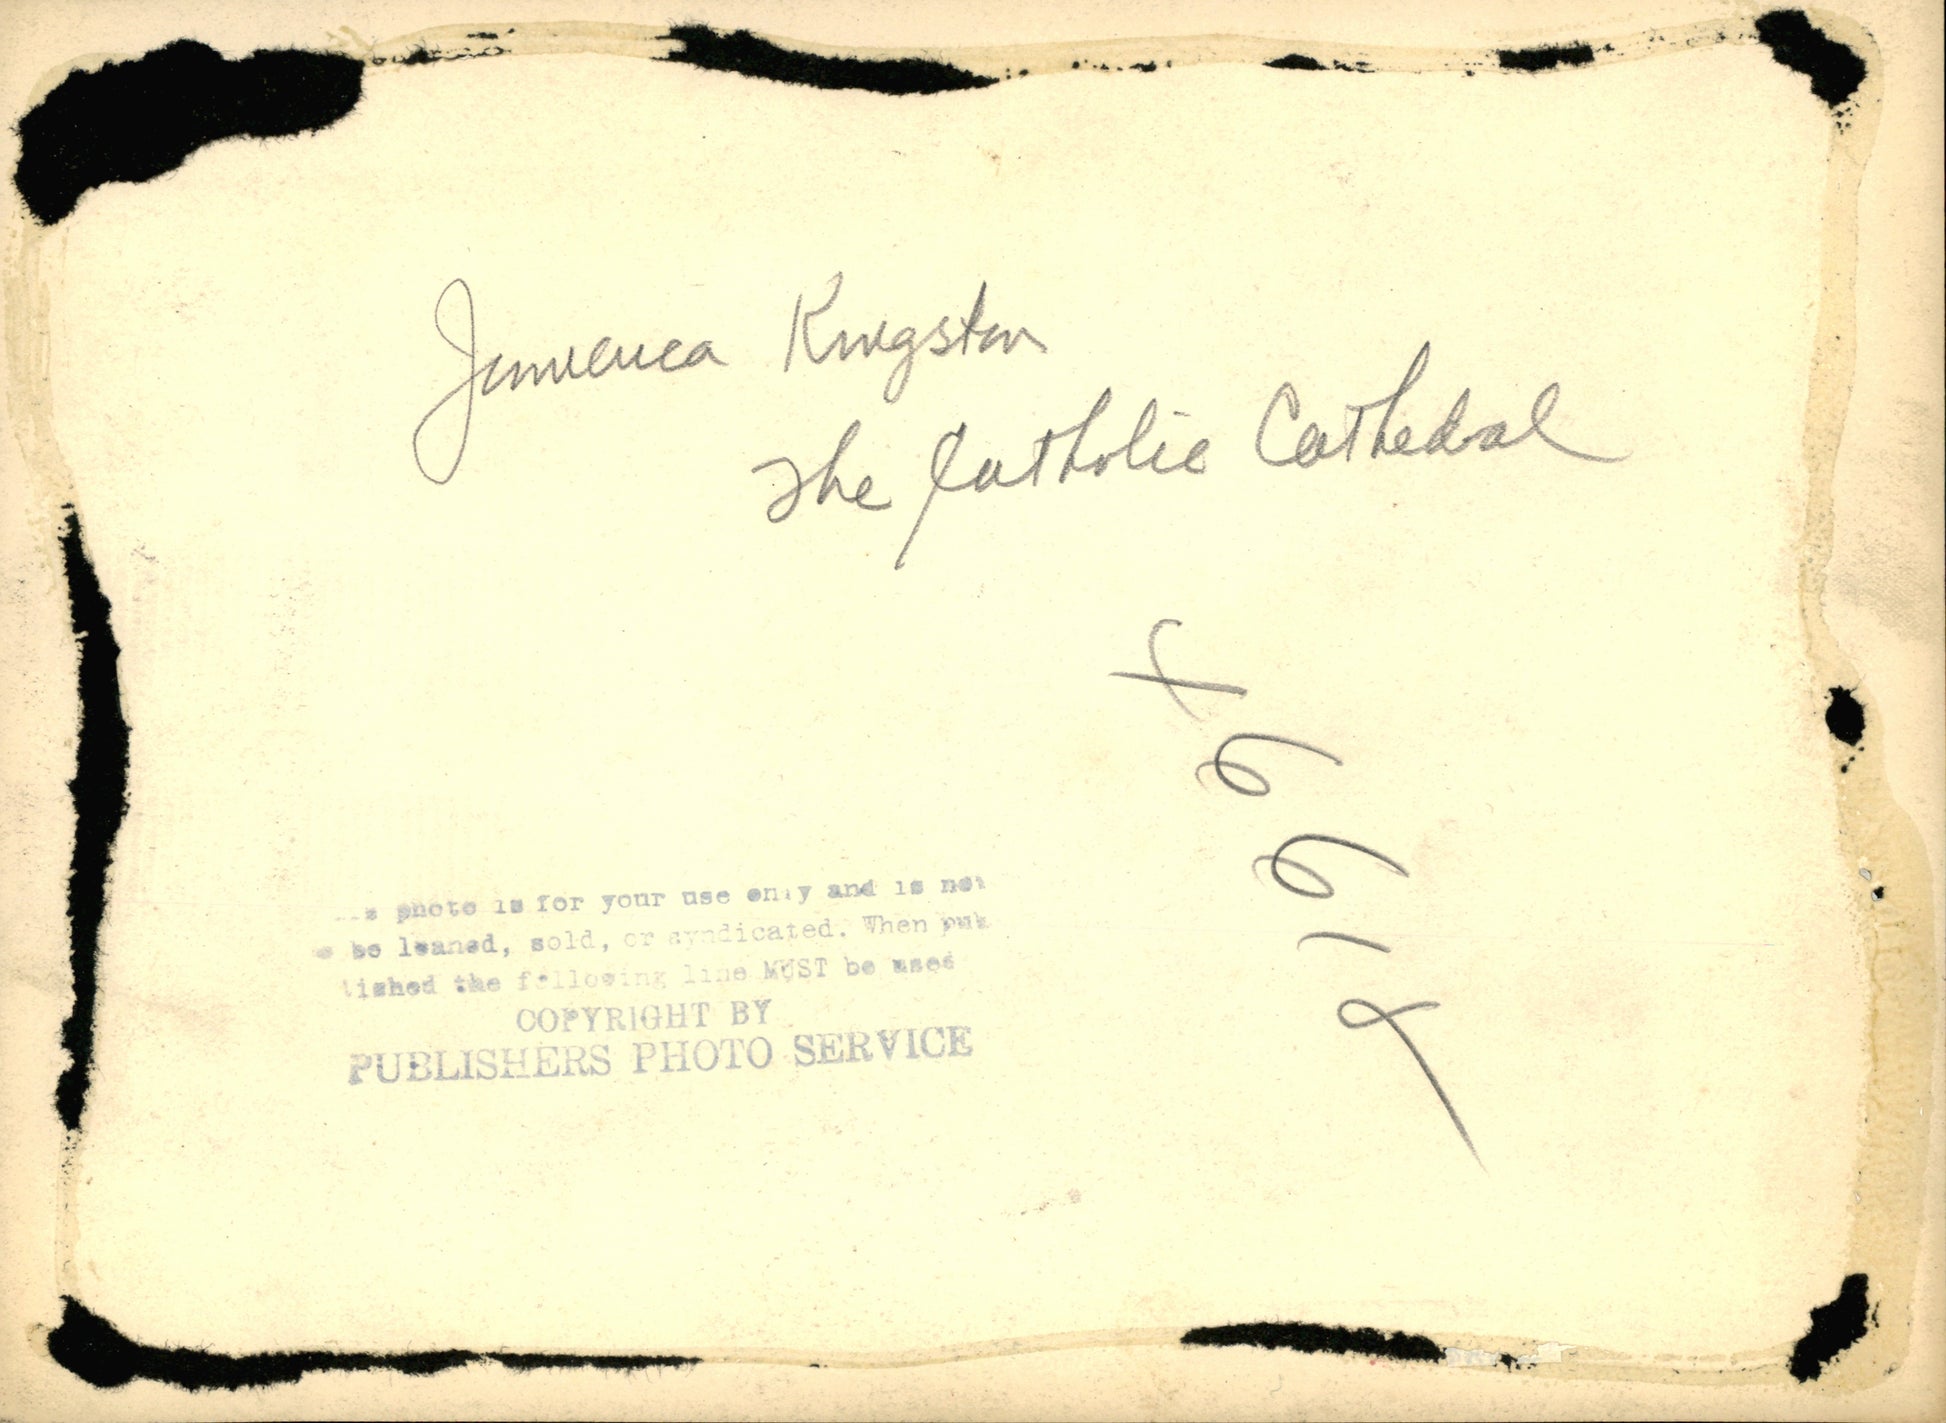 Jamaica Kingston
The Catholic Cathedral
photo is for your use only and is not
be loaned, sold, or syndicated. When pub
lished the following line MUST be used
COPYRIGHT BY
PUBLISHERS PHOTO SERVICE